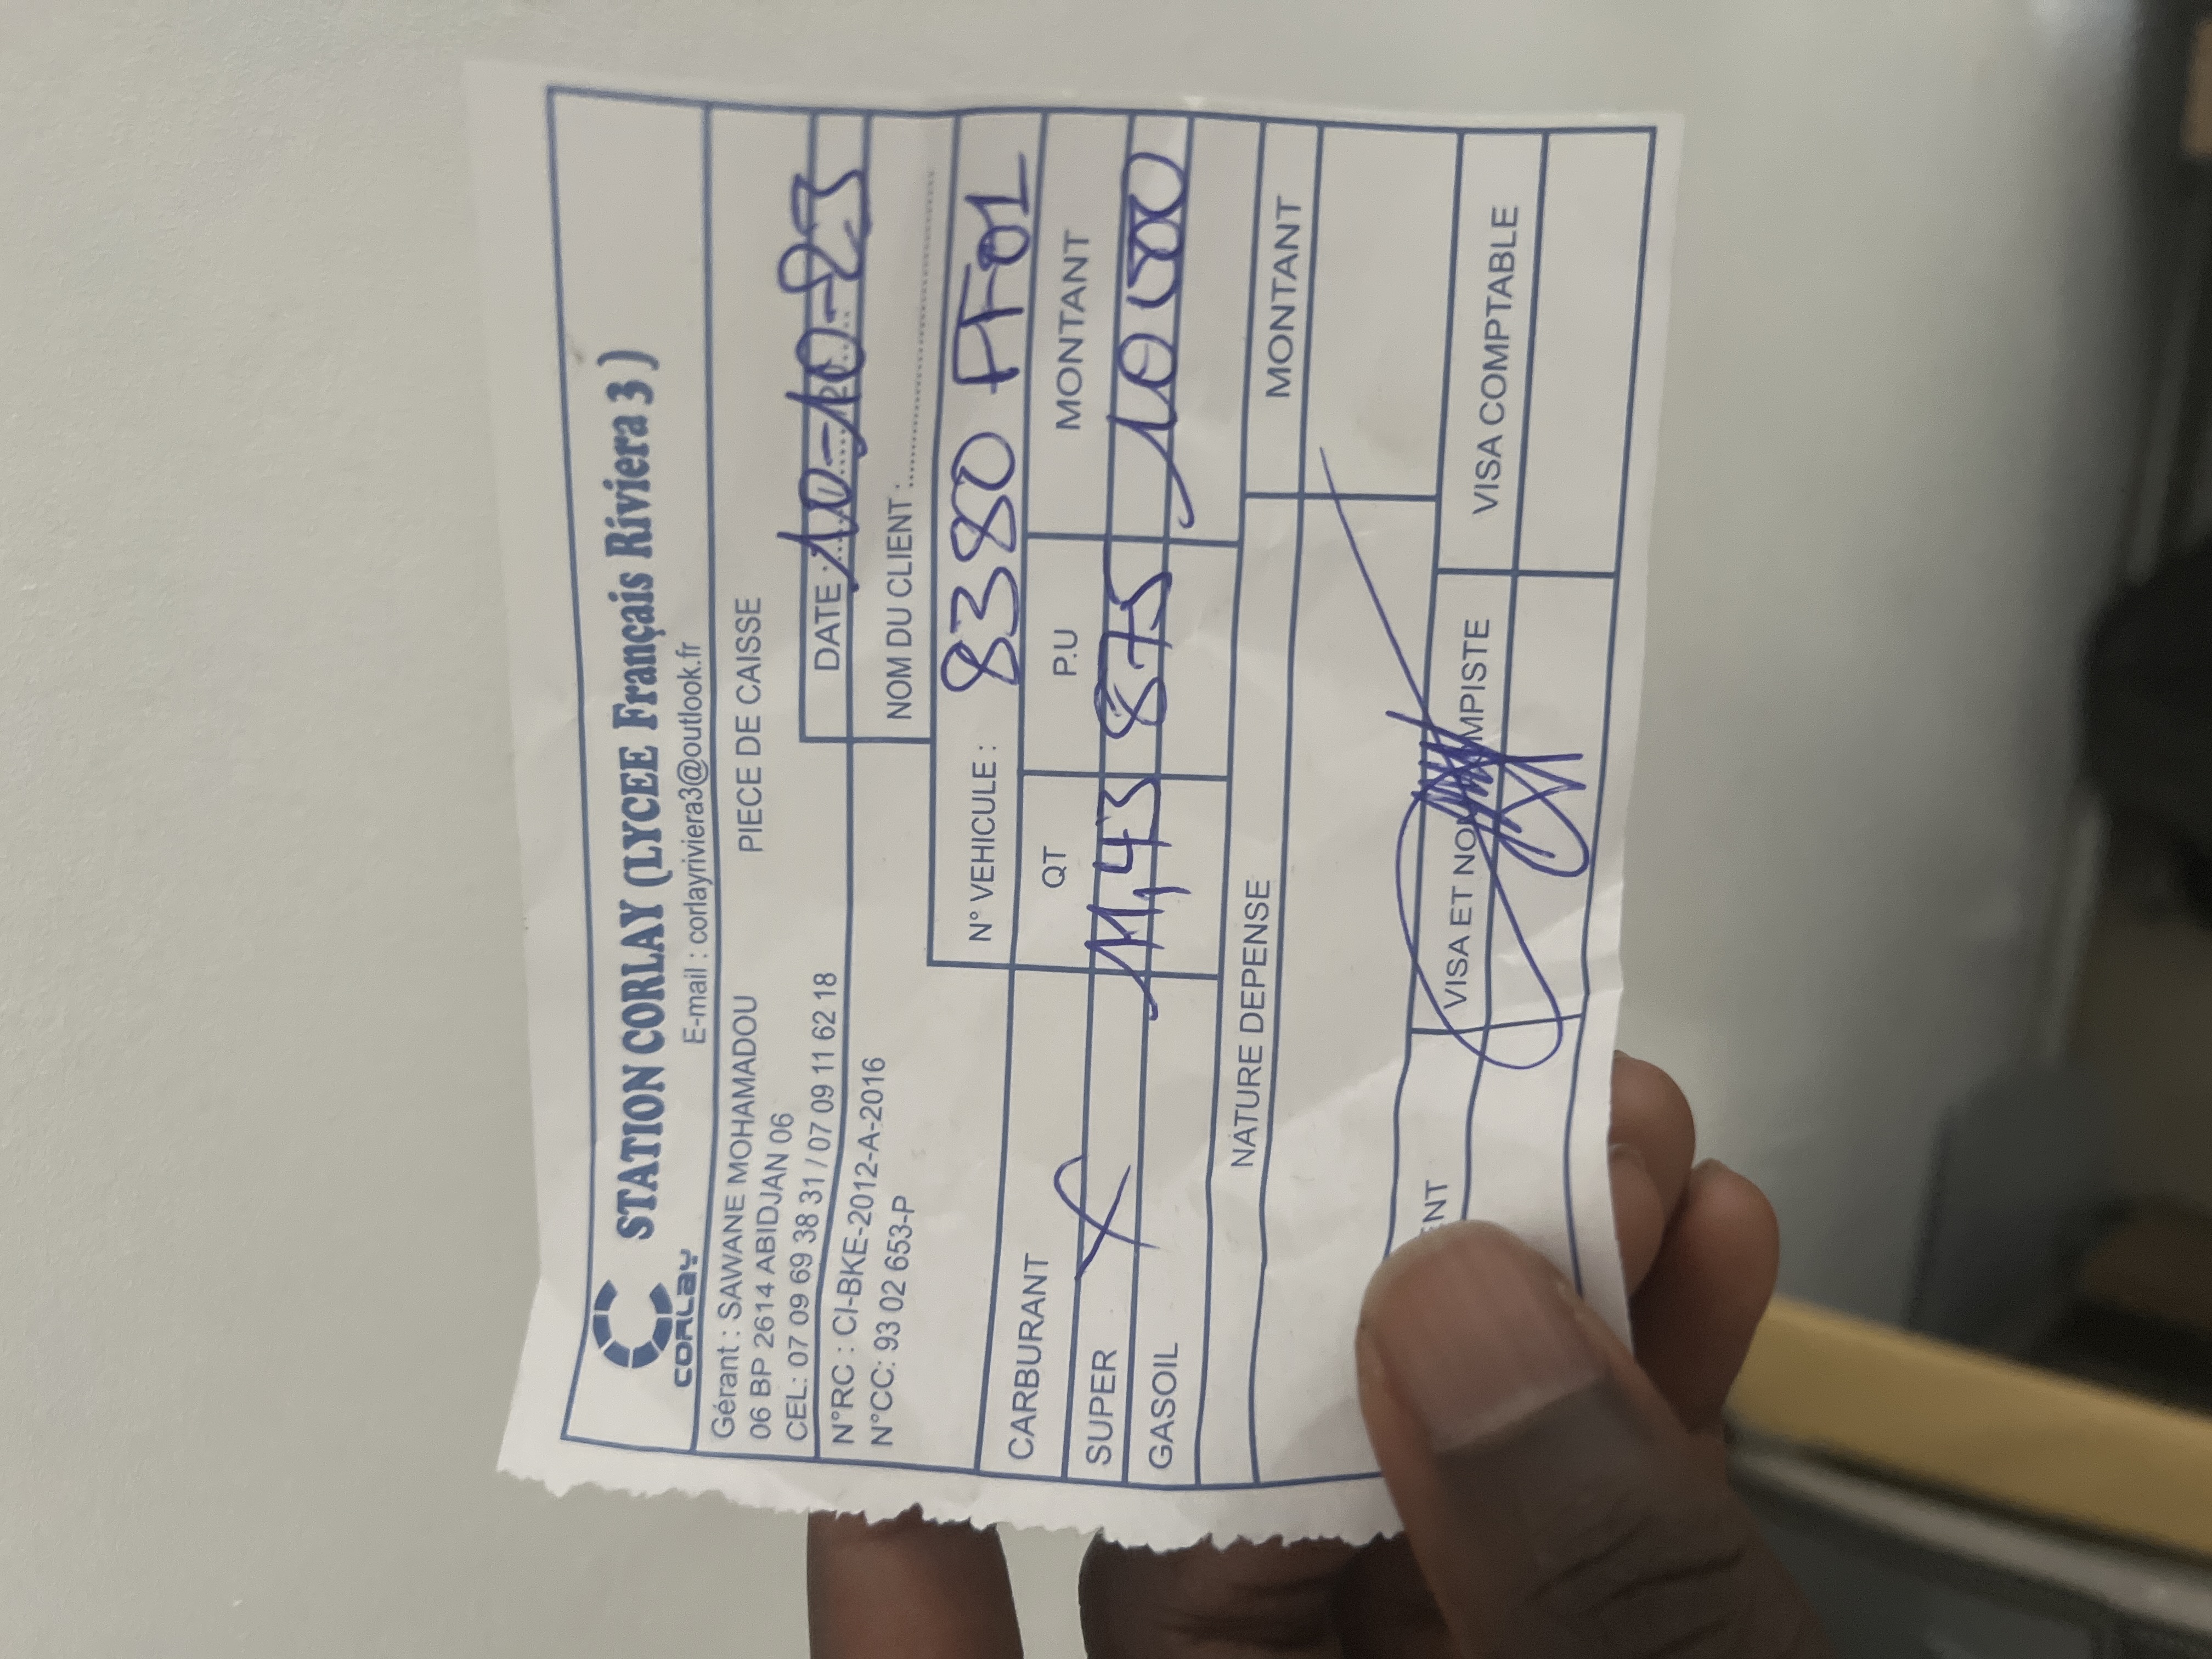 CORLAY
STATION CORLAY (LYCEE Français Riviera 3 )
E-mail : corlayriviera3@outlook.fr
Gérant : SAWANE MOHAMADOU
06 BP 2614 ABIDJAN 06
CEL: 07 09 69 38 31 / 07 09 11 62 18
PIECE DE CAISSE
N°RC : CI-BKE-2012-A-2016
N°CC: 93 02 653-P
DATE : 10-10-23
NOM DU CLIENT :
N° VEHICULE : 8380 FF01
CARBURANT QT P.U MONTANT
SUPER X 11,43 875 10 000
GASOIL
NATURE DEPENSE MONTANT
VISA ET NOM MPISTE
VISA COMPTABLE